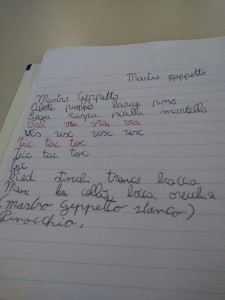 Mastro Geppetto
Mastro Geppetto
Abete pioppo larice pino
Sega raspa pialla martello
vis via via
vis visc visc visc
Tic tac toc
Tic tac toc
tic
Piedi stinchi tronco braccia
Mani collo bocca orecchia
(mastro Geppetto stanco)
Pinocchio.